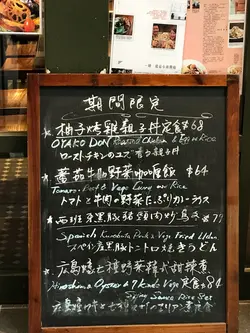 期間限定
柚子烤雞親子丼定食 $68
OYAKO DON Roasted Chicken & Egg on Rice
ローストチキンのユズ香る親子丼
蕃茄牛肋野菜咖喱飯 $64
Tomato, Beef & Vege Curry on Rice
トマトと牛肉の野菜たっぷりカレーライス
西班牙黑豚豬頸肉炒烏冬 $79
Spanish Kurobuta Pork & Vege Fried Udon
スペイン産黒豚トントロ焼きうどん
広島蠔七種野菜 定食
Hiroshima Oyster & 7 kinds Vege $84
Set
広島